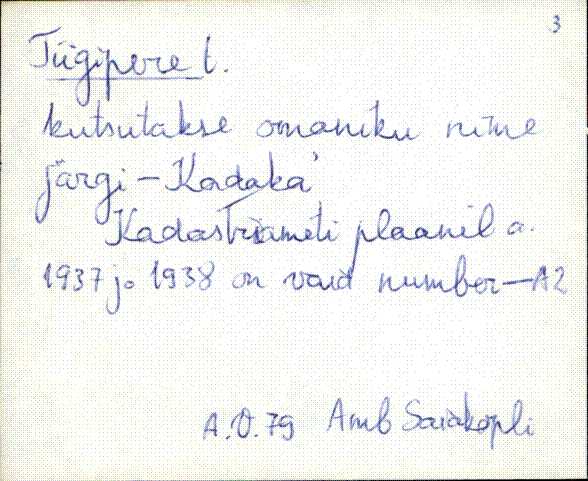 3
Tiigipere t.
kutsutakse omaniku nime
järgi – Kadaka'
Kadastriameti plaanil a.
1937 ja 1938 on vaid number – A2
A.O.79 Amb Saiakopli